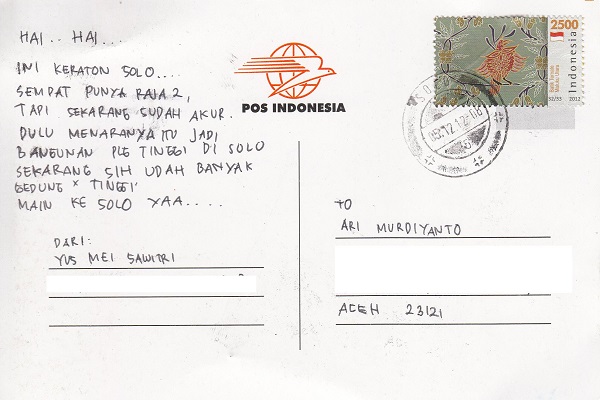 HAI.. HAI....
INI KERATON SOLO....
SEMPAT PUNYA RAJA 2,
TAPI SEKARANG SUDAH AKUR.
DULU MENARANYA ITU JADI
BANGUNAN PLG TINGGI DI SOLO
SEKARANG SIH UDAH BANYAK
GEDUNG x TINGGI
MAIN KE SOLO YAA.....
DARI:
YUS MEI SAWITRI
POS INDONESIA
2500
Indonesia
2012
TO
ARI MURDIYANTO
ACEH 23121